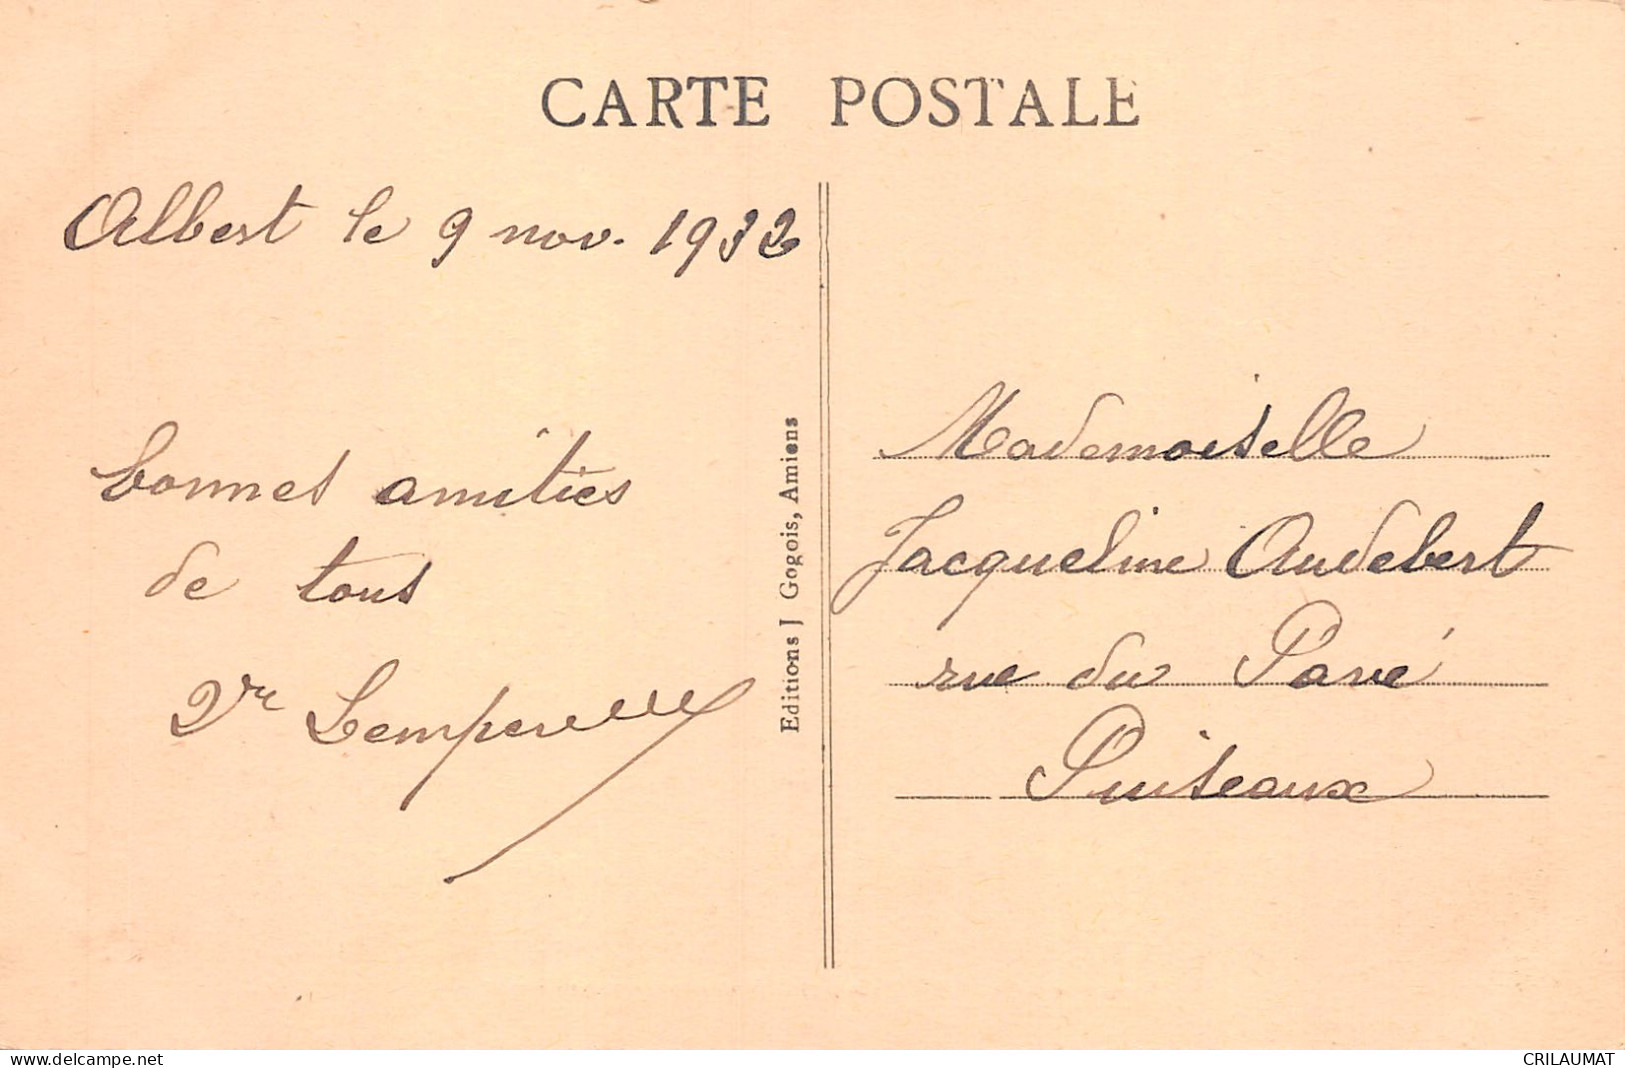 CARTE POSTALE
Albert le 9 nov. 1932
bonnes amitiés
de tous
Vve
Editions J Gogois, Amiens
Mademoiselle
Jacqueline Audebert
rue du Pavé
Puiseaux
www.delcampe.net
CRILAUMAT